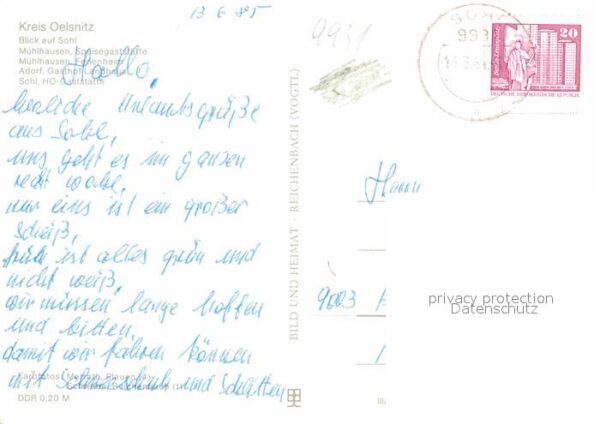 13 6 85
Kreis Oelsnitz
Blick auf Sohl
Mühlhausen, Speisegaststätte
Mühlhausen,
Adorf, Gasthof
Sohl, HO-Gaststätte
Hallo,
herzliche Urlaubsgrüße
aus Sohl,
uns geht es im ganzen
recht wohl,
nur eins ist ein großer
Scheiß,
hier ist alles grün und
nicht weiß,
wir müssen lange hoffen
und bitten,
damit wir fahren können
mit Schneeschuh und Schlitten
Plauen (4)
DDR 0,20 M
BILD UND HEIMAT · REICHENBACH (VOGTL)
9931
993
20
DEUTSCHE DEMOKRATISCHE REPUBLIK
9003
privacy protection
Datenschutz